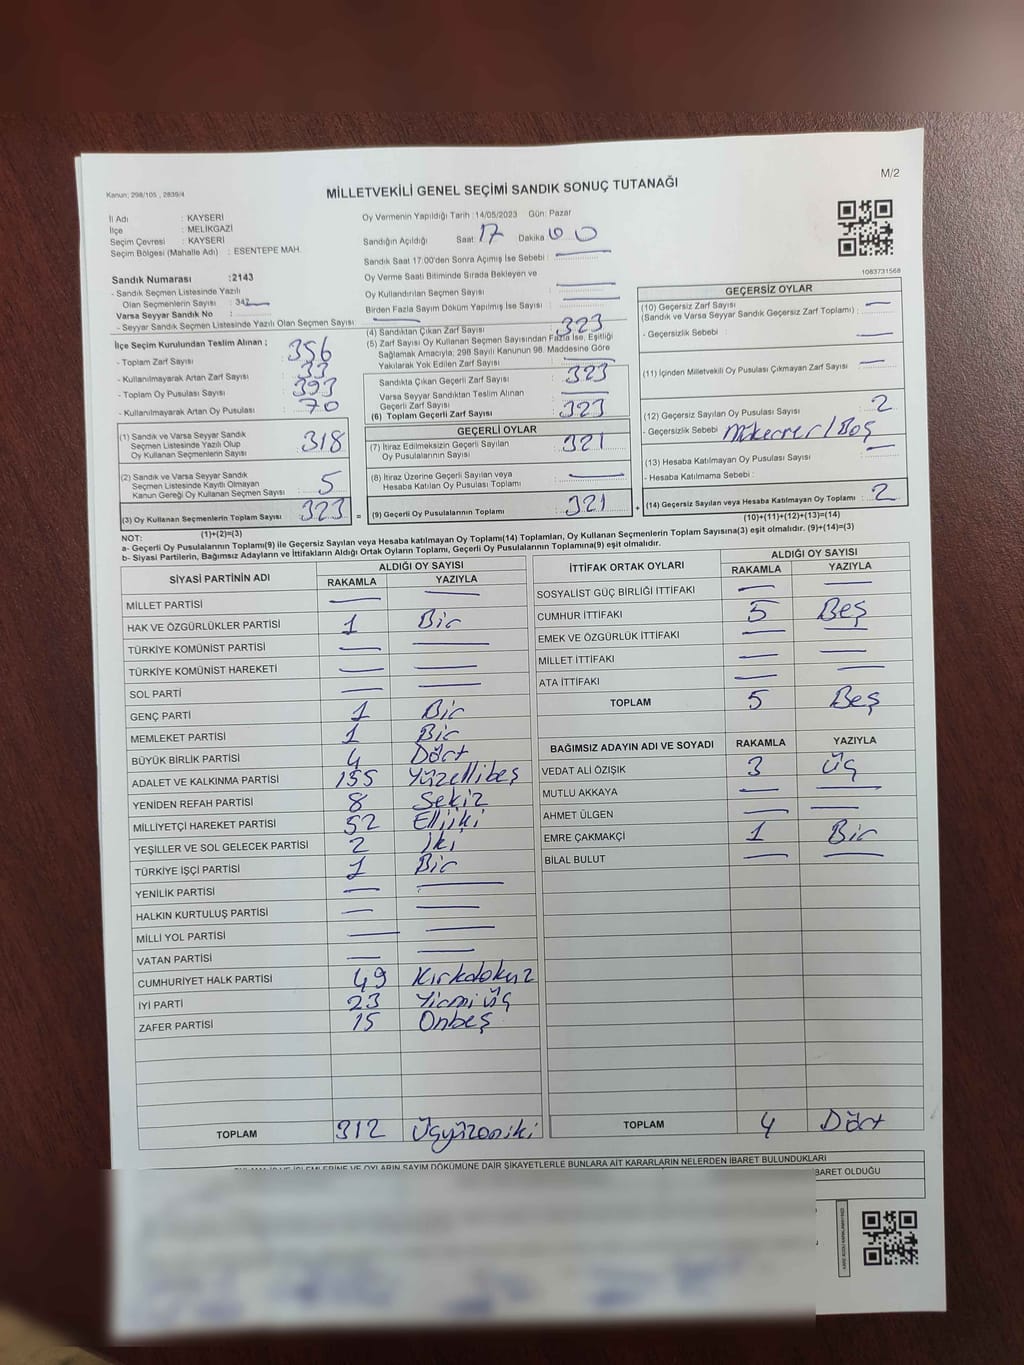 M/2
Kanun: 298/105 , 2839/4
MİLLETVEKİLİ GENEL SEÇİMİ SANDIK SONUÇ TUTANAĞI
İl Adı : KAYSERİ
İlçe : MELİKGAZİ
Seçim Çevresi : KAYSERİ
Seçim Bölgesi (Mahalle Adı) : ESENTEPE MAH.
Sandık Numarası :2143
- Sandık Seçmen Listesinde Yazılı
Olan Seçmenlerin Sayısı : 342
Varsa Seyyar Sandık No :
- Seyyar Sandık Seçmen Listesinde Yazılı Olan Seçmen Sayısı
İlçe Seçim Kurulundan Teslim Alınan ;
- Toplam Zarf Sayısı : 356
- Kullanılmayarak Artan Zarf Sayısı : 33
- Toplam Oy Pusulası Sayısı : 393
- Kullanılmayarak Artan Oy Pusulası : 70
(1) Sandık ve Varsa Seyyar Sandık
Seçmen Listesinde Yazılı Olup
Oy Kullanan Seçmenlerin Sayısı : 318
(2) Sandık ve Varsa Seyyar Sandık
Seçmen Listesinde Kayıtlı Olmayan
Kanun Gereği Oy Kullanan Seçmen Sayısı : 5
(3) Oy Kullanan Seçmenlerin Toplam Sayısı : 323 =
(1)+(2)=(3)
Oy Vermenin Yapıldığı Tarih :14/05/2023 Gün: Pazar
Sandığın Açıldığı Saat: 17 Dakika 00
Sandık Saat 17:00'den Sonra Açımış İse Sebebi :
Oy Verme Saati Bitiminde Sırada Bekleyen ve
Oy Kullandırılan Seçmen Sayısı :
Birden Fazla Sayım Döküm Yapılmış İse Sayısı :
(4) Sandıktan Çıkan Zarf Sayısı : 323
(5) Zarf Sayısı Oy Kullanan Seçmen Sayısından Fazla İse, Eşitliği
Sağlamak Amacıyla; 298 Sayılı Kanunun 98. Maddesine Göre
Yakılarak Yok Edilen Zarf Sayısı :
Sandıkta Çıkan Geçerli Zarf Sayısı : 323
Varsa Seyyar Sandıktan Teslim Alınan
Geçerli Zarf Sayısı :
(6) Toplam Geçerli Zarf Sayısı : 323
GEÇERLİ OYLAR
(7) İtiraz Edilmeksizin Geçerli Sayılan
Oy Pusulasının Sayısı : 321
(8) İtiraz Üzerine Geçerli Sayılan veya
Hesaba Katılan Oy Pusulası Toplamı :
(9) Geçerli Oy Pusulalarının Toplamı : 321 +
1083731568
GEÇERSİZ OYLAR
(10) Geçersiz Zarf Sayısı
(Sandık ve Varsa Seyyar Sandık Geçersiz Zarf Toplamı) :
- Geçersizlik Sebebi :
(11) İçinden Milletvekili Oy Pusulası Çıkmayan Zarf Sayısı :
(12) Geçersiz Sayılan Oy Pusulası Sayısı : 2
- Geçersizlik Sebebi : Mükerrer/Boş
(13) Hesaba Katılmayan Oy Pusulası Sayısı :
- Hesaba Katılmama Sebebi :
(14) Geçersiz Sayılan veya Hesaba Katılmayan Oy Toplamı : 2
(10)+(11)+(12)+(13)=(14)
NOT:
a- Geçerli Oy Pusulalarının Toplamı(9) ile Geçersiz Sayılan veya Hesaba katılmayan Oy Toplamı(14) Toplamları, Oy Kullanan Seçmenlerin Toplam Sayısına(3) eşit olmalıdır. (9)+(14)=(3)
b- Siyasi Partilerin, Bağımsız Adayların ve İttifakların Aldığı Ortak Oyların Toplamı, Geçerli Oy Pusulalarının Toplamına(9) eşit olmalıdır.
SİYASİ PARTİNİN ADI ALDIĞI OY SAYISI
RAKAMLA YAZIYLA
MİLLET PARTİSİ
HAK VE ÖZGÜRLÜKLER PARTİSİ 1 Bir
TÜRKİYE KOMÜNİST PARTİSİ
TÜRKİYE KOMÜNİST HAREKETİ
SOL PARTİ
GENÇ PARTİ 1 Bir
MEMLEKET PARTİSİ 1 Bir
BÜYÜK BİRLİK PARTİSİ 4 Dört
ADALET VE KALKINMA PARTİSİ 155 Yüzellibeş
YENİDEN REFAH PARTİSİ 8 Sekiz
MİLLİYETÇİ HAREKET PARTİSİ 52 Elliiki
YEŞİLLER VE SOL GELECEK PARTİSİ 2 İki
TÜRKİYE İŞÇİ PARTİSİ 1 Bir
YENİLİK PARTİSİ
HALKIN KURTULUŞ PARTİSİ
MİLLİ YOL PARTİSİ
VATAN PARTİSİ
CUMHURİYET HALK PARTİSİ 49 Kırkdokuz
İYİ PARTİ 23 Yirmi üç
ZAFER PARTİSİ 15 Onbeş
TOPLAM 312 Üçyüzoniki
İTTİFAK ORTAK OYLARI ALDIĞI OY SAYISI
RAKAMLA YAZIYLA
SOSYALİST GÜÇ BİRLİĞİ İTTİFAKI
CUMHUR İTTİFAKI 5 Beş
EMEK VE ÖZGÜRLÜK İTTİFAKI
MİLLET İTTİFAKI
ATA İTTİFAKI
TOPLAM 5 Beş
BAĞIMSIZ ADAYIN ADI VE SOYADI RAKAMLA YAZIYLA
VEDAT ALİ ÖZIŞIK 3 Üç
MUTLU AKKAYA
AHMET ÜLGEN
EMRE ÇAKMAKÇİ 1 Bir
BİLAL BULUT
TOPLAM 4 Dört
İŞLEMLERİNE VE OYLARIN SAYIM DÖKÜMÜNE DAİR ŞİKAYETLERLE BUNLARA AİT KARARLARIN NELERDEN İBARET BULUNDUKLARI
İBARET OLDUĞU